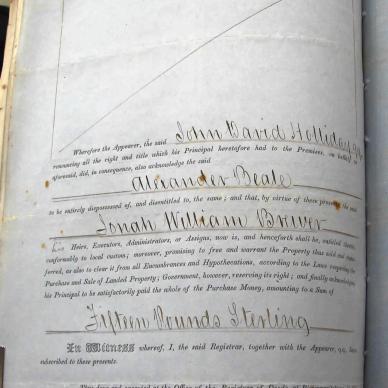 Wherefore the Appearer, the said John David Holliday
renouncing all the right and title which his Principal heretofore had to the Premises, on behalf as
aforesaid, did, in consequence, also acknowledge the said
Alexander Beale
to be entirely dispossessed of, and disentitled to, the same; and that, by virtue of these presents, the said
Jonah William Brewer
his Heirs, Executors, Administrators, or Assigns, now is, and henceforth shall be, entitled thereto,
conformably to local custom; moreover, promising to free and warrant the Property thus sold and
ferred, as also to clear it from all Encumbrances and Hypothecations, according to the Laws respecting the
Purchase and Sale of Landed Property; Government, however, reserving its right; and finally acknowledging
his Principal to be satisfactorily paid the whole of the Purchase Money, amounting to a Sum of
Fifteen Pounds Sterling
In Witness whereof, I, the said Registrar, together with the Appearer, q.q., have
subscribed to these presents.